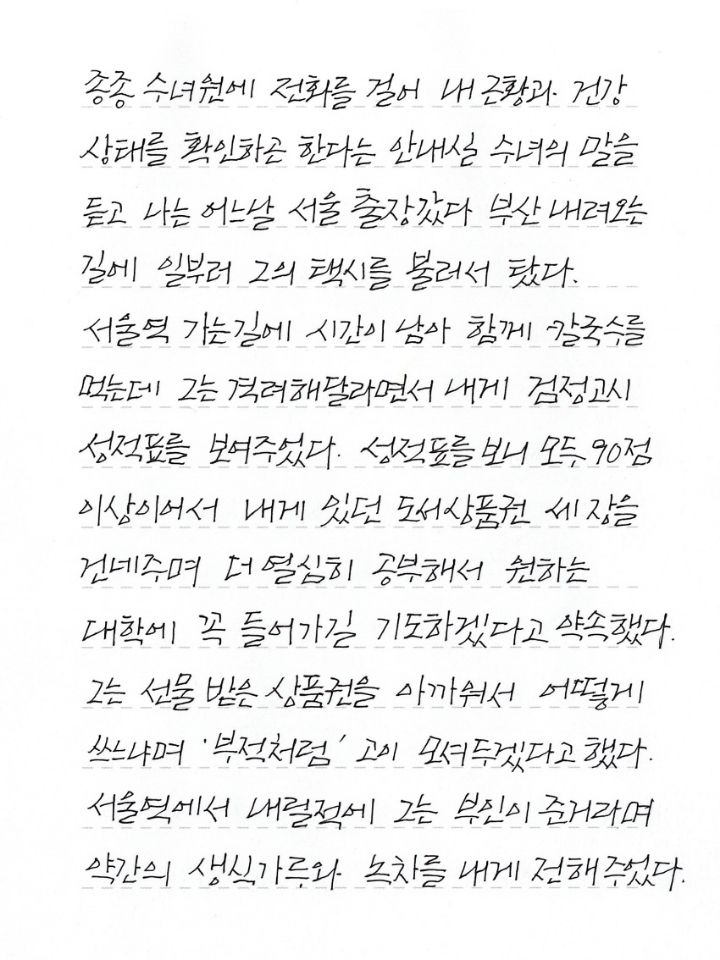 종종 수녀원에 전화를 걸어 내 근황과 건강
상태를 확인하곤 한다는 안내실 수녀의 말을
듣고 나는 어느날 서울 출장갔다 부산 내려오는
길에 일부러 그의 택시를 불러서 탔다.
서울역 가는길에 시간이 남아 함께 칼국수를
먹는데 그는 격려해달라면서 내게 검정고시
성적표를 보여주었다. 성적표를 보니 모두 90점
이상이어서 내게 있던 도서상품권 세 장을
건네주며 더 열심히 공부해서 원하는
대학에 꼭 들어가길 기도하겠다고 약속했다.
그는 선물 받은 상품권을 아까워서 어떻게
쓰느냐며 '부적처럼' 고이 모셔두겠다고 했다.
서울역에서 내릴적에 그는 부인이 준거라며
약간의 생식가루와 녹차를 내게 전해주었다.